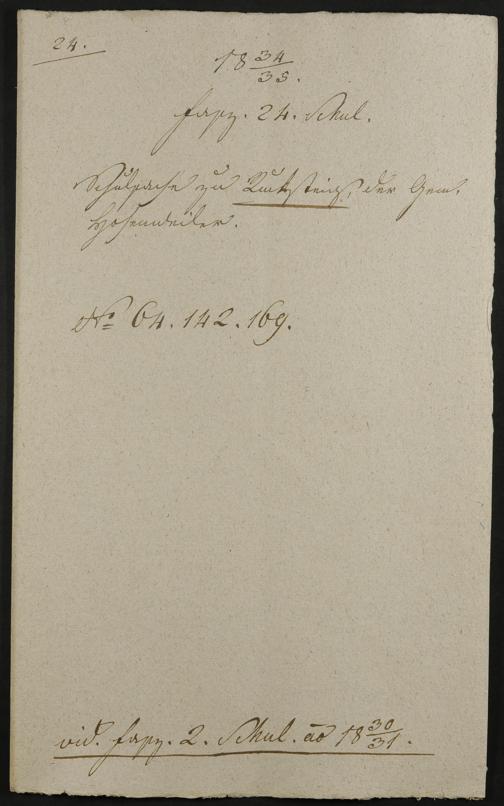 24.
18 34/35.
Fasz. 24. Schul.
Schulsache zu Rucksteig, der Gem.
Hohenweiler.
No 64. 142. 169.
vid. Fasz. 2. Schul. ad 18 30/31.